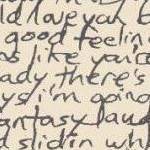 ld love yah b
good feelin
s like you're
ady there's
ys i'm going
antasy laud
d slidin wh